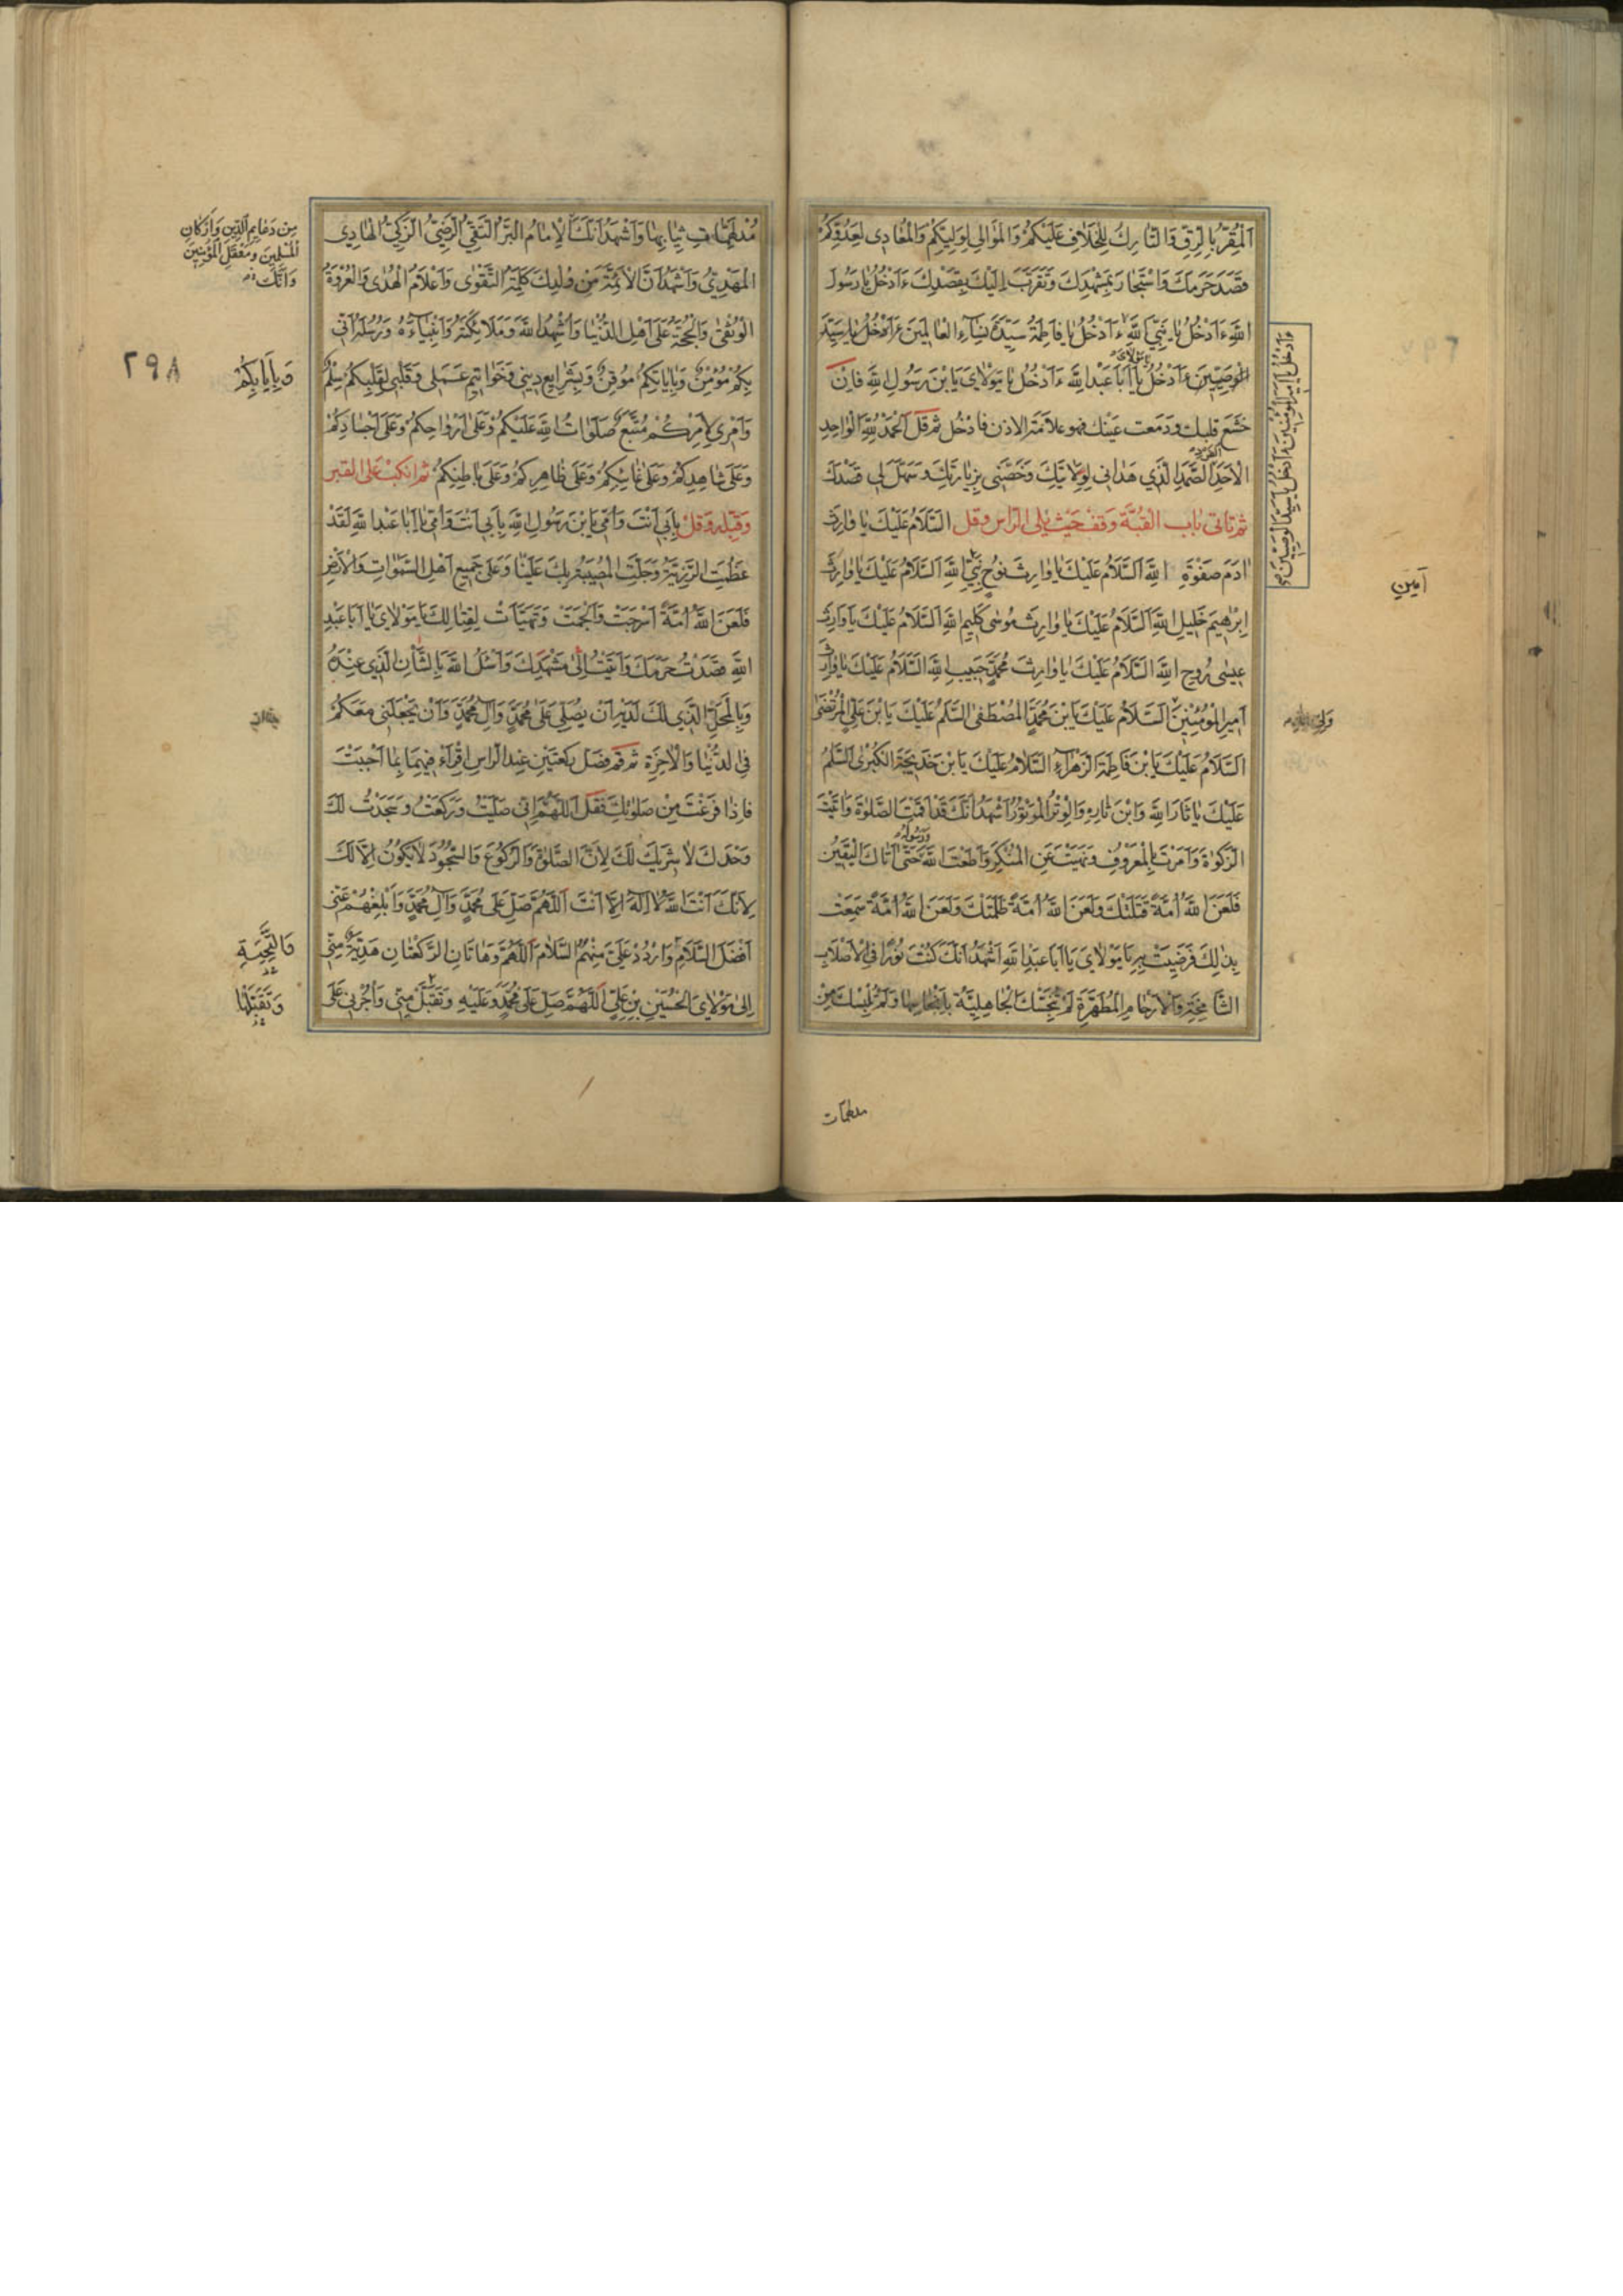 اَلْمُقِرُّ بِالرِّقِّ وَالتَّارِكُ لِلْخِلَافِ عَلَيْكُمْ وَالْمُوَالِي لِوَلِيِّكُمْ وَالْمُعَادِي لِعَدُوِّكُمْ
قَصَدَ حَرَمَكَ وَاسْتَجَارَ بِمَشْهَدِكَ وَتَقَرَّبَ اِلَيْكَ بِقَصْدِكَ ءَاَدْخُلُ يَا رَسُولَ
اللَّهِ ءَاَدْخُلُ يَا نَبِيَّ اللَّهِ ءَاَدْخُلُ يَا فَاطِمَةُ سَيِّدَةَ نِسَاءِ الْعَالَمِينَ ءَاَدْخُلُ يَا سَيِّدَ
الْوَصِيّينَ ءَاَدْخُلُ يَا مَوْلَايَ يَا اَبَا عَبْدِ اللَّهِ ءَاَدْخُلُ يَا مَوْلَايَ يَا بْنَ رَسُولِ اللَّهِ فَاِنْ
خشع قلبك ودمعت عينك فهو علامة الاذن فادخل ثم قل اَلْحَمْدُ لِلَّهِ الْوَاحِدِ
الْاَحَدِ الْفَرْدِ الصَّمَدِ الَّذِي هَدَانِي لِوِلَايَتِكَ وَخَصَّنِي بِزِيَارَتِكَ وَسَهَّلَ لِي قَصْدَكَ
ثم تاتي باب القبّة وقف حيث يلي الرّاس وقل اَلسَّلَامُ عَلَيْكَ يَا وَارِثَ
اٰدَمَ صَفْوَةِ اللَّهِ اَلسَّلَامُ عَلَيْكَ يَا وَارِثَ نُوحٍ نَبِيِّ اللَّهِ اَلسَّلَامُ عَلَيْكَ يَا وَارِثَ
اِبْرٰهِيمَ خَلِيلِ اللَّهِ اَلسَّلَامُ عَلَيْكَ يَا وَارِثَ مُوسٰى كَلِيمِ اللَّهِ اَلسَّلَامُ عَلَيْكَ يَا وَارِثَ
عِيسٰى رُوحِ اللَّهِ اَلسَّلَامُ عَلَيْكَ يَا وَارِثَ مُحَمَّدٍ حَبِيبِ اللَّهِ اَلسَّلَامُ عَلَيْكَ يَا وَارِثَ
اَمِيرِ الْمُؤْمِنِينَ اَلسَّلَامُ عَلَيْكَ يَا بْنَ مُحَمَّدٍ الْمُصْطَفٰى اَلسَّلَامُ عَلَيْكَ يَا بْنَ عَلِيٍّ الْمُرْتَضٰى
اَلسَّلَامُ عَلَيْكَ يَا بْنَ فَاطِمَةَ الزَّهْرَاءِ اَلسَّلَامُ عَلَيْكَ يَا بْنَ خَدِيجَةَ الْكُبْرٰى اَلسَّلَامُ
عَلَيْكَ يَا ثَارَ اللَّهِ وَابْنَ ثَارِهِ وَالْوِتْرَ الْمَوْتُورَ اَشْهَدُ اَنَّكَ قَدْ اَقَمْتَ الصَّلٰوةَ وَاٰتَيْتَ
الزَّكٰوةَ وَاَمَرْتَ بِالْمَعْرُوفِ وَنَهَيْتَ عَنِ الْمُنْكَرِ وَاَطَعْتَ اللَّهَ وَرَسُولَهُ حَتّٰى اَتَاكَ الْيَقِينُ
فَلَعَنَ اللَّهُ اُمَّةً قَتَلَتْكَ وَلَعَنَ اللَّهُ اُمَّةً ظَلَمَتْكَ وَلَعَنَ اللَّهُ اُمَّةً سَمِعَتْ
بِذٰلِكَ فَرَضِيَتْ بِهِ يَا مَوْلَايَ يَا اَبَا عَبْدِ اللَّهِ اَشْهَدُ اَنَّكَ كُنْتَ نُورًا فِي الْاَصْلَابِ
الشَّامِخَةِ وَالْاَرْحَامِ الْمُطَهَّرَةِ لَمْ تُنَجِّسْكَ الْجَاهِلِيَّةُ بِاَنْجَاسِهَا وَلَمْ تُلْبِسْكَ مِنْ
ءَاَدْخُلُ يَا اَمِيرَ الْمُؤْمِنِينَ ءَاَدْخُلُ يَا سَيِّدَ الْوَصِيِّينَ
اَمِينِ
مدلهمات
مُدْلَهِمَّاتِ ثِيَابِهَا وَاَشْهَدُ اَنَّكَ الْاِمَامُ الْبَرُّ التَّقِيُّ الرَّضِيُّ الزَّكِيُّ الْهَادِي
الْمَهْدِيُّ وَاَشْهَدُ اَنَّ الْاَئِمَّةَ مِنْ وُلْدِكَ كَلِمَةُ التَّقْوٰى وَاَعْلَامُ الْهُدٰى وَالْعُرْوَةُ
الْوُثْقٰى وَالْحُجَّةُ عَلٰى اَهْلِ الدُّنْيَا وَاُشْهِدُ اللَّهَ وَمَلَائِكَتَهُ وَاَنْبِيَاءَهُ وَرُسُلَهُ اَنِّي
بِكُمْ مُؤْمِنٌ وَبِاِيَابِكُمْ مُوقِنٌ وَبِشَرَايِعِ دِينِي وَخَوَاتِيمِ عَمَلِي وَقَلْبِي لِقَلْبِكُمْ سِلْمٌ
وَاَمْرِي لِاَمْرِكُمْ مُتَّبِعٌ صَلَوَاتُ اللَّهِ عَلَيْكُمْ وَعَلٰى اَرْوَاحِكُمْ وَعَلٰى اَجْسَادِكُمْ
وَعَلٰى شَاهِدِكُمْ وَعَلٰى غَائِبِكُمْ وَعَلٰى ظَاهِرِكُمْ وَعَلٰى بَاطِنِكُمْ ثم انكبّ على القبر
وَقَبِّلْهُ وَقُلْ بِاَبِي اَنْتَ وَاُمِّي يَا بْنَ رَسُولِ اللَّهِ بِاَبِي اَنْتَ وَاُمِّي يَا اَبَا عَبْدِ اللَّهِ لَقَدْ
عَظُمَتِ الرَّزِيَّةُ وَجَلَّتِ الْمُصِيبَةُ بِكَ عَلَيْنَا وَعَلٰى جَمِيعِ اَهْلِ السَّمٰوَاتِ وَالْاَرْضِ
فَلَعَنَ اللَّهُ اُمَّةً اَسْرَجَتْ وَاَلْجَمَتْ وَتَهَيَّاَتْ لِقِتَالِكَ يَا مَوْلَايَ يَا اَبَا عَبْدِ
اللَّهِ قَصَدْتُ حَرَمَكَ وَاَتَيْتُ اِلٰى مَشْهَدِكَ وَاَسْئَلُ اللَّهَ بِالشَّاْنِ الَّذِي عِنْدَهُ
وَبِالْمَحَلِّ الَّذِي لَكَ لَدَيْهِ اَنْ يُصَلِّيَ عَلٰى مُحَمَّدٍ وَاٰلِ مُحَمَّدٍ وَاَنْ يَجْعَلَنِي مَعَكُمْ
فِي الدُّنْيَا وَالْاٰخِرَةِ ثم قم فصلّ ركعتين عند الراس اقراء فيهما بما اَحْبَبْتَ
فَاِذَا فَرَغْتَ مِنْ صَلٰوتِكَ فَقُلْ اَللّٰهُمَّ اِنِّي صَلَّيْتُ وَرَكَعْتُ وَسَجَدْتُ لَكَ
وَحْدَكَ لَا شَرِيكَ لَكَ لِاَنَّ الصَّلٰوةَ وَالرُّكُوعَ وَالسُّجُودَ لَا يَكُونُ اِلَّا لَكَ
لِاَنَّكَ اَنْتَ اللَّهُ لَا اِلٰهَ اِلَّا اَنْتَ اَللّٰهُمَّ صَلِّ عَلٰى مُحَمَّدٍ وَاٰلِ مُحَمَّدٍ وَاَبْلِغْهُمْ عَنِّي
اَفْضَلَ السَّلَامِ وَارْدُدْ عَلَيَّ مِنْهُمُ السَّلَامَ اَللّٰهُمَّ وَهَاتَانِ الرَّكْعَتَانِ هَدِيَّةٌ مِنِّي
اِلٰى مَوْلَايَ الْحُسَيْنِ بْنِ عَلِيٍّ اَللّٰهُمَّ صَلِّ عَلٰى مُحَمَّدٍ وَعَلَيْهِ وَتَقَبَّلْ مِنِّي وَاْجُرْنِي عَلٰى
مِنْ دَعَايِمِ الدِّينِ وَاَرْكَانِ
الْمُسْلِمِينَ وَمَعْقِلِ الْمُؤْمِنِينَ
وَاَنَّكَ
وَبِاِيَابِكُمْ
٢٩٨
وَالتَّحِيَّةِ
وَتَقَبَّلْهَا